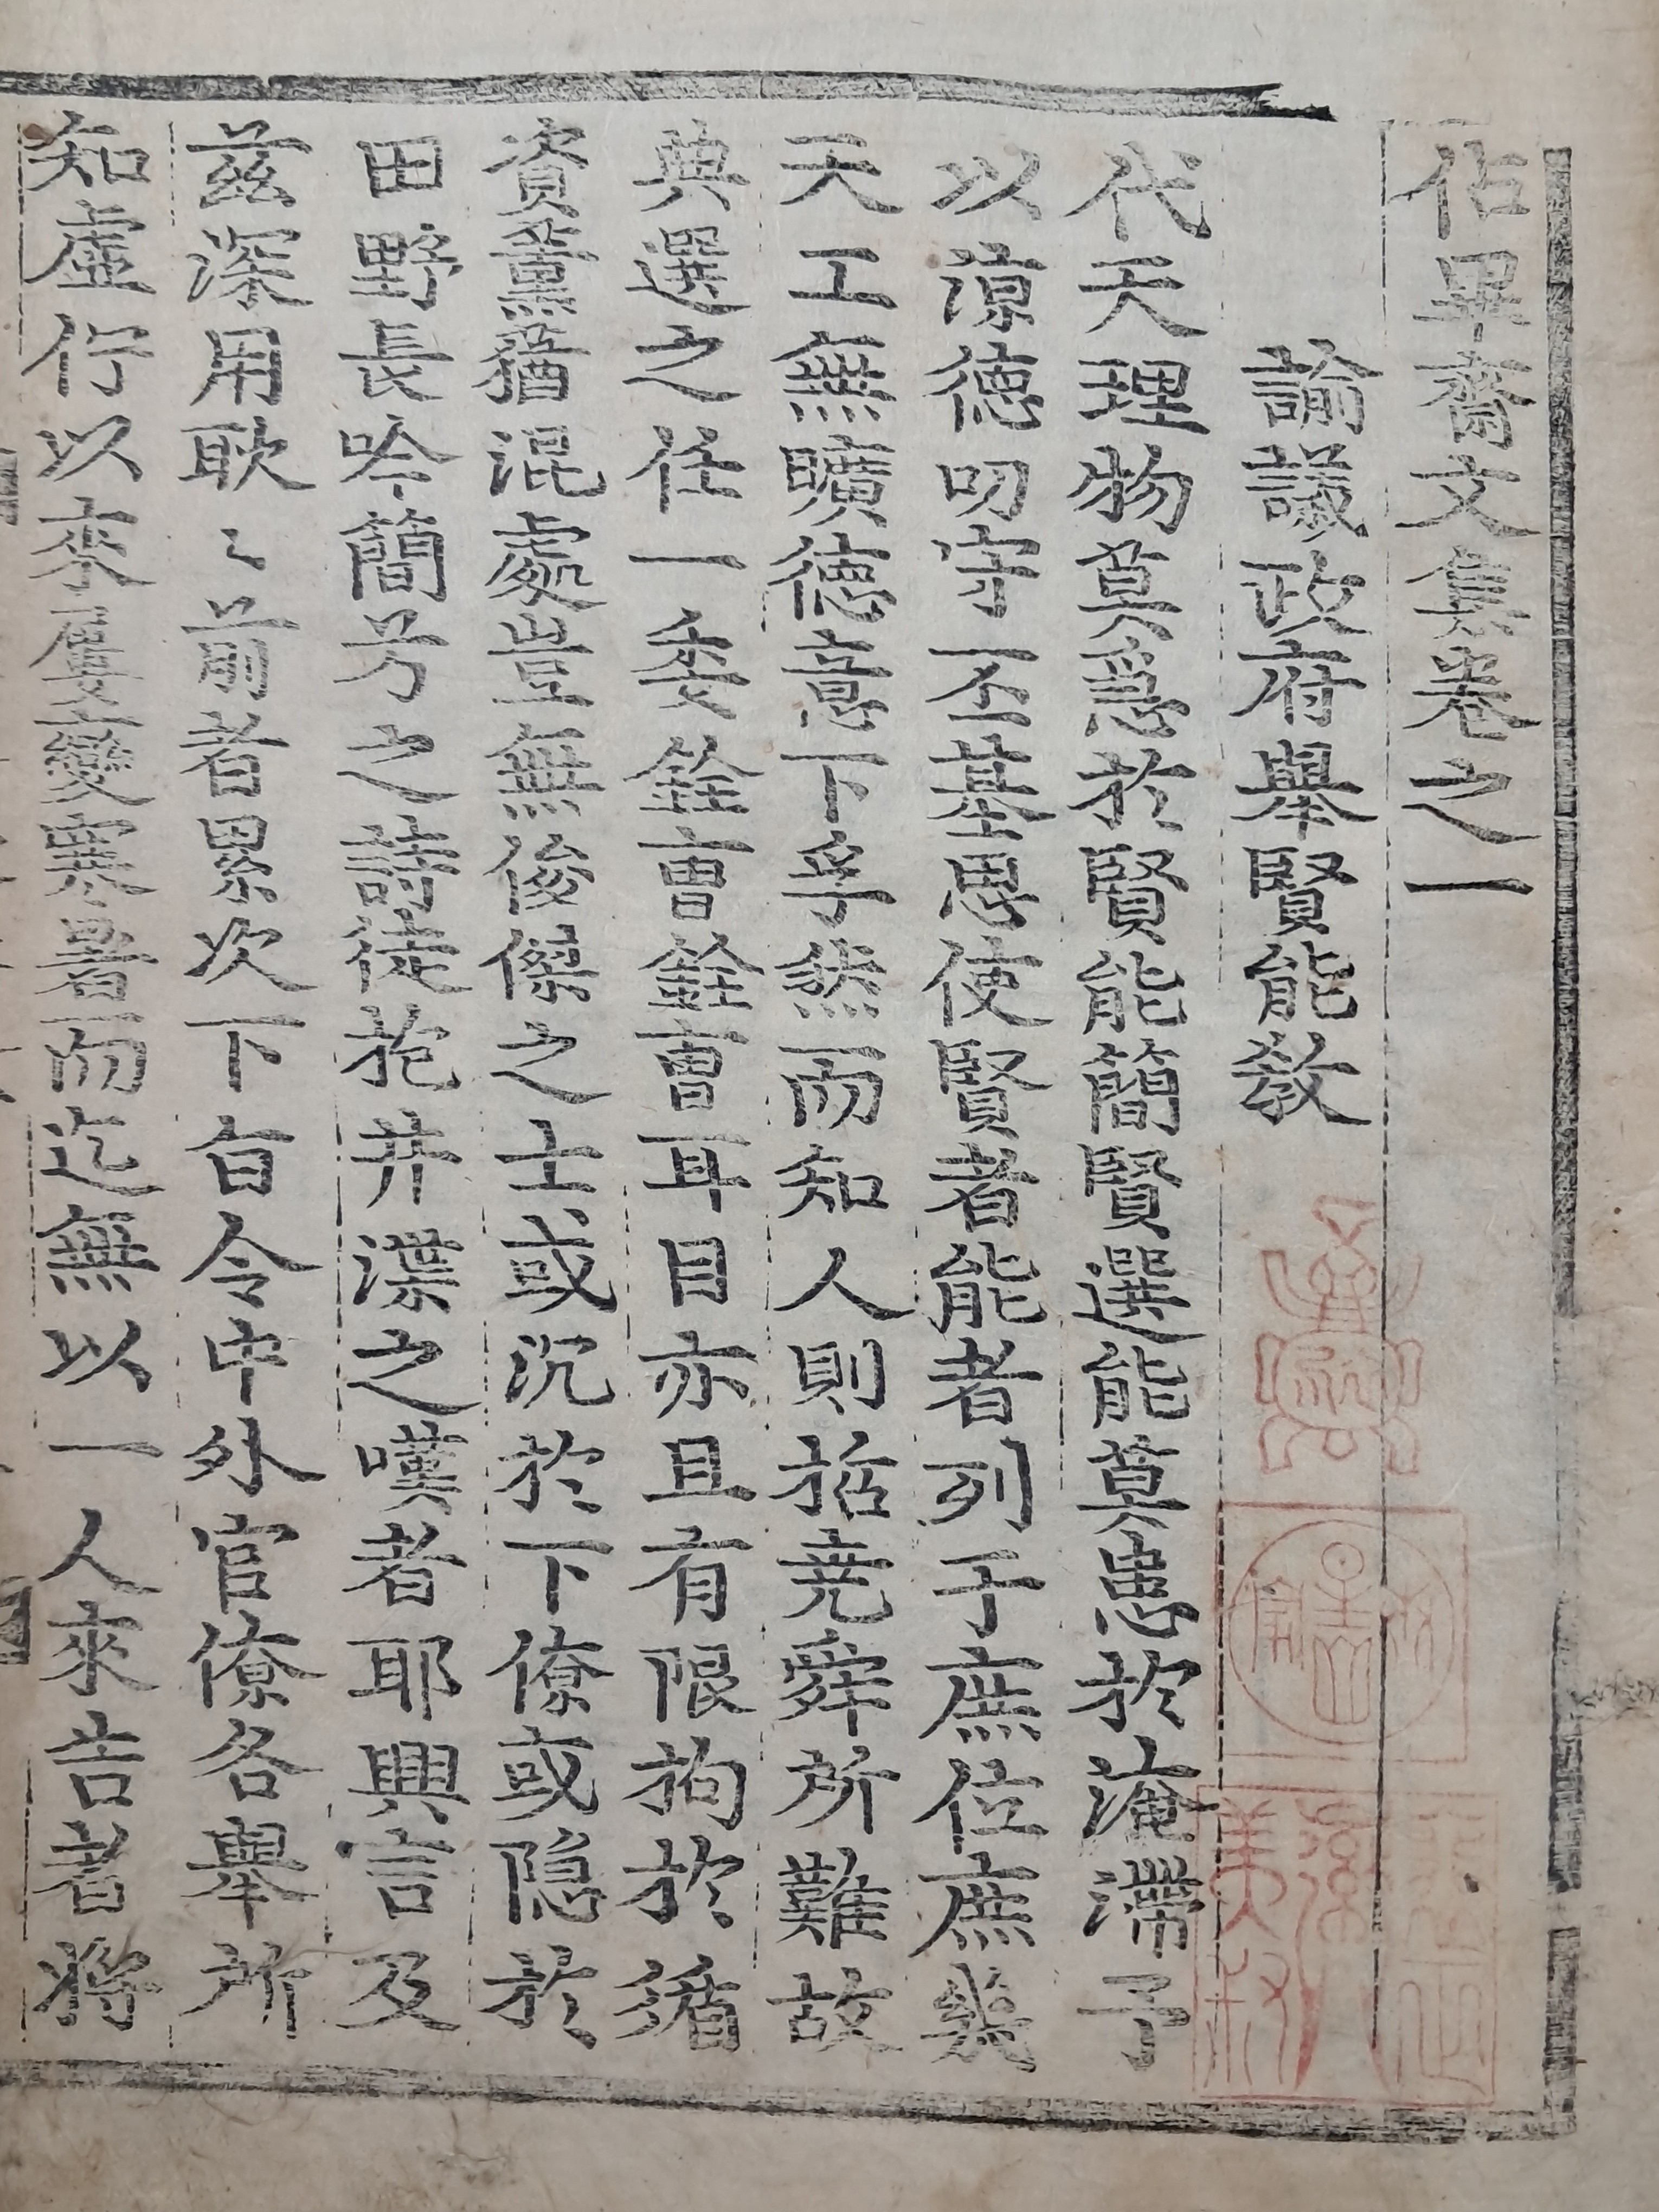 佔畢齋文集卷之一
諭議政府舉賢能教
代天理物莫急於賢能簡賢選能莫患於淹滯予
以涼德叨守丕基思使賢者能者列于庶位庶幾
天工無曠德意下孚然而知人則堯舜所難故
典選之任一委銓曹銓曹耳目亦且有限拘於循
資薰猶混處豈無俊傑之士或沉於下僚或隱於
田野長吟簡兮之詩徒抱井渫之嘆者耶興言及
茲深用耿〻前者累次下旨令中外官僚各舉所
知虛佇以來屢變寒暑而迄無以一人來告者將